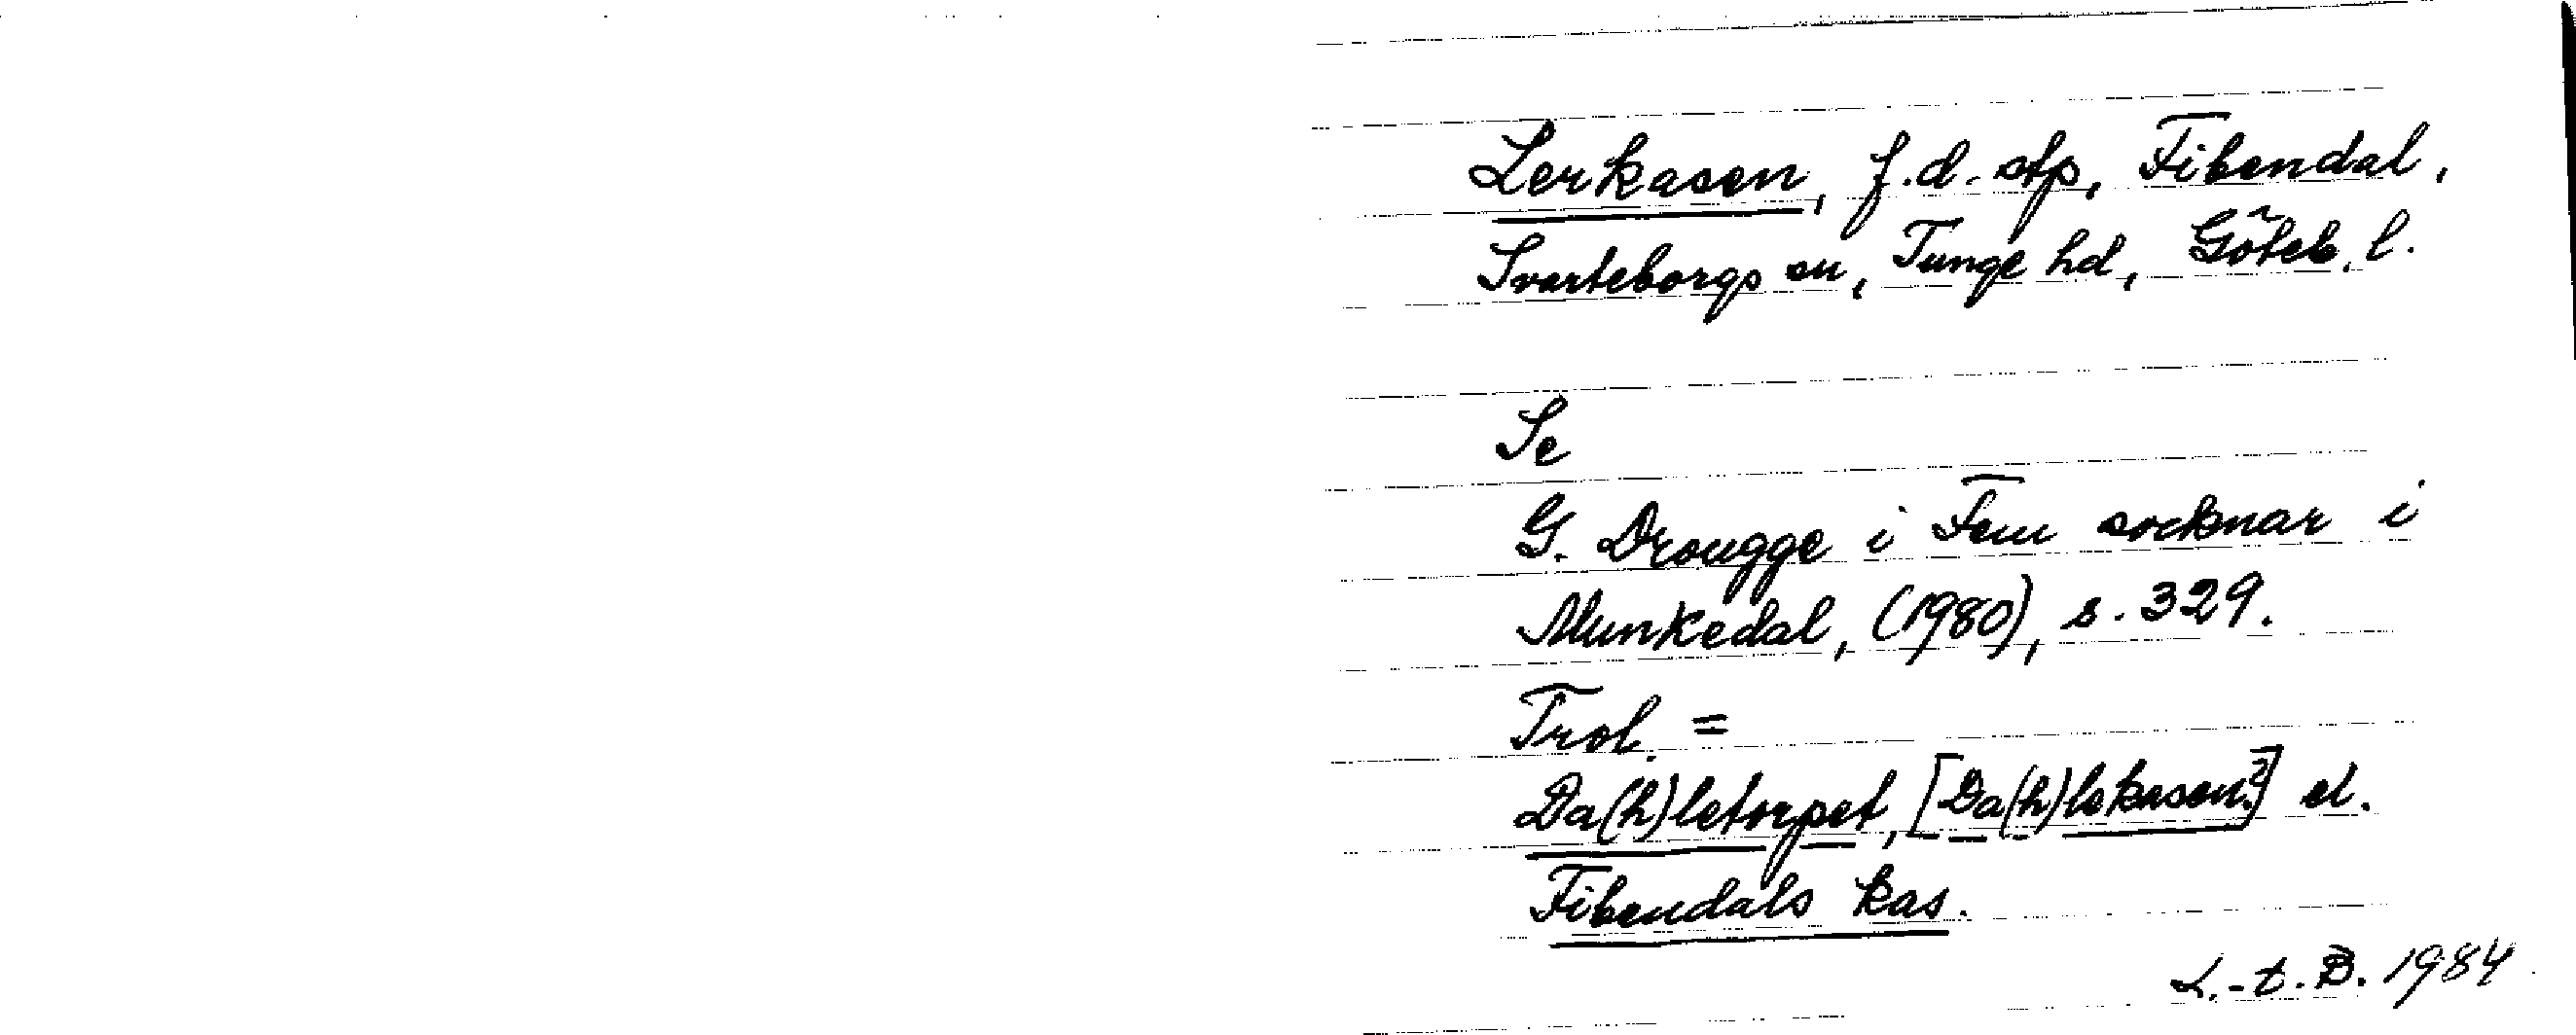 Lerkasen, f.d. stp, Fibendal,
Svarteborgs sn, Tunge hd, Göteb. l.
Se
G. Drougge i Fem socknar i
Munkedal, (1980), s. 329.
Trol. =
Da(h)letorpet, [Da(h)lekasen?] el.
Fibendals kas.
L.-t. B. 1984